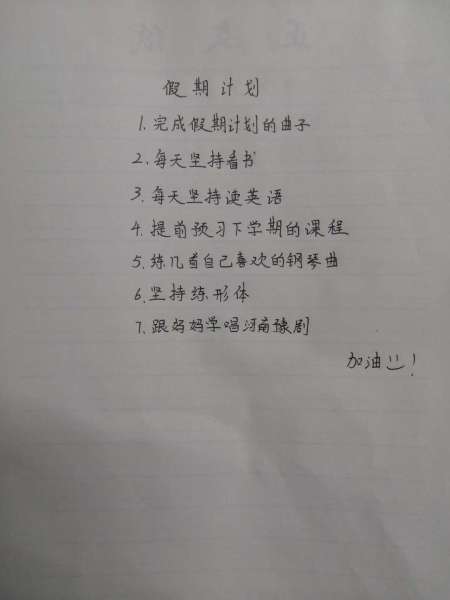 假期计划
1.完成假期计划的曲子
2.每天坚持看书
3.每天坚持读英语
4.提前预习下学期的课程
5.练几首自己喜欢的钢琴曲
6.坚持练形体
7.跟妈妈学唱河南豫剧
加油!